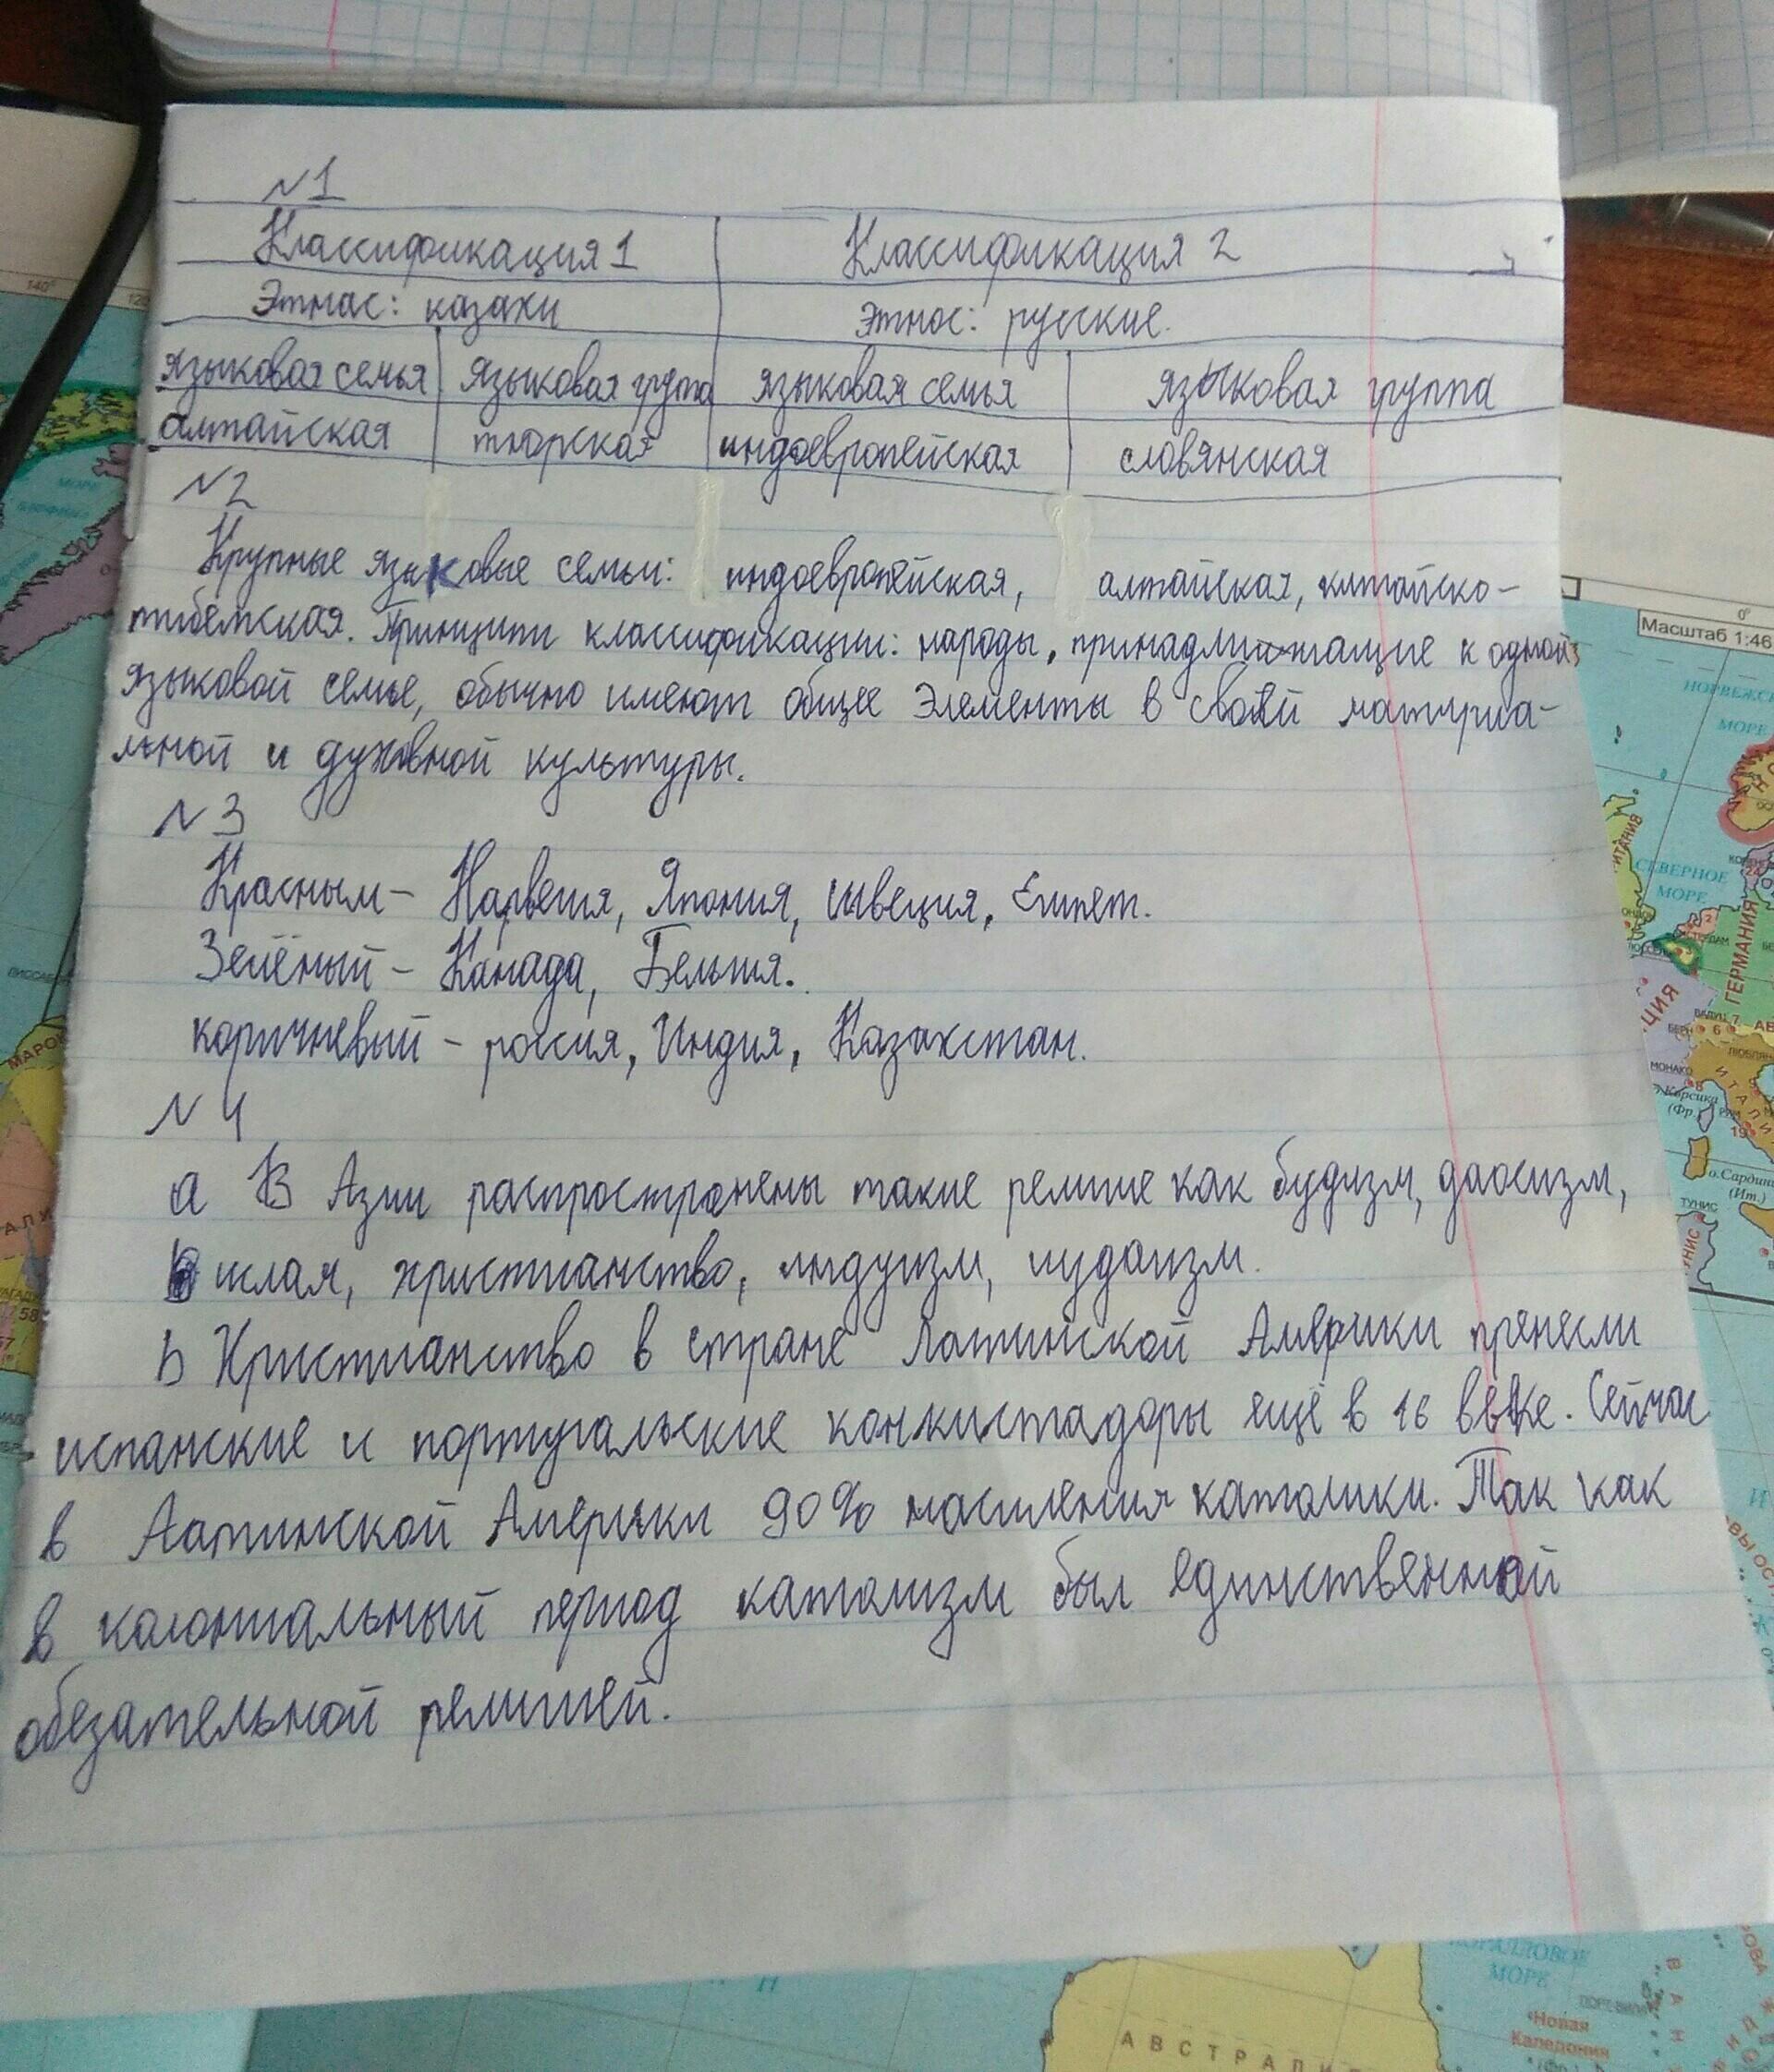 N1
Классификация 1 Классификация 2
Этнас: казахи этнос: русские.
языковая семья языковая група языковая семья языковая группа
алтайская тюрская индоевропейская словянская
N2
Крупные языковые семьи: индоевропейская, алтайская, китайско-
тибетская. Принципи классификации: народы, принадлижащие к одной
языковой семье, обычно имеют общее элементы в своей матириа-
льной и духовной культуры.
N3
Красным - Нарвегия, Япония, швеция, Египет.
Зелёный - Канада, Бельгия.
коричневый - россия, Индия, Казахстан.
N4
а В Азии распространены такие религие как будизм, даосизм,
ислам, христианство, индуизм, иудаизм.
b Христианство в стране Латинской Америки пренесли
испанские и португальские конкистадоры ещё в 16 веке. Сейчас
в Латинской Америки 90% насиления католики. Так как
в колониальный период католизм был единственной
обезательной религией.
Масштаб 1:46
0°
140°
120
НОРВЕЖС
МОРЕ
СЕВЕРНОЕ
МОРЕ
ГЕРМАНИЯ
БЕРН
ВАДУЦ
МОНАКО
о.Корсика
(Фр.)
ИТАЛИ
19
о.Сардин
(Ит.)
ТУНИС
МАРОК
58
57
КОРАЛЛОВОЕ
МОРЕ
АВСТРАЛИ
Новая
Каледония